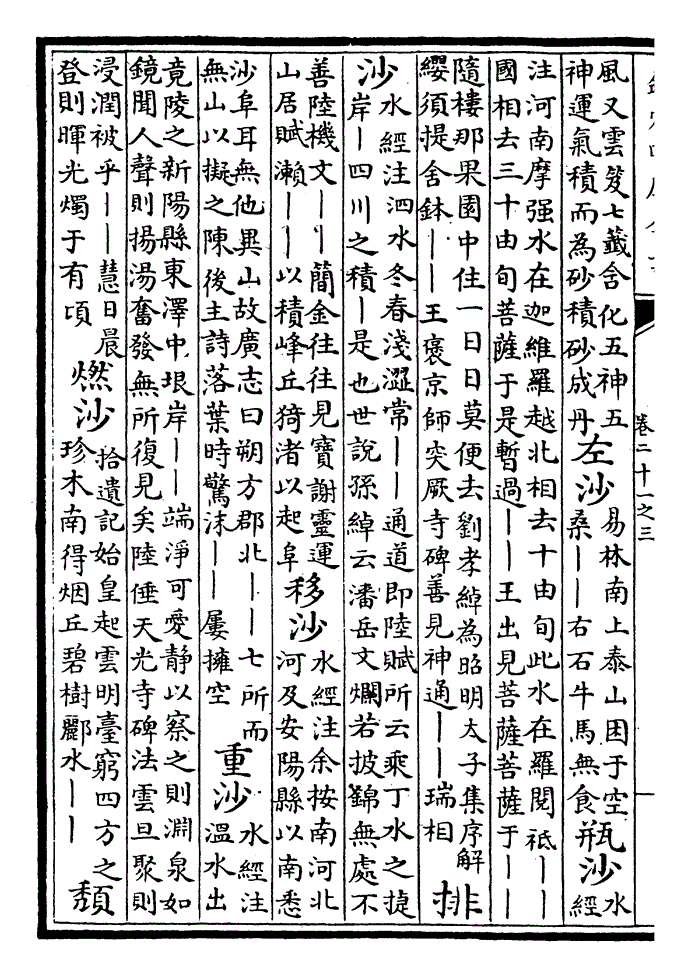 卷二十一之三
風又雲笈七籤含化五神五
神運氣積而為砂積砂成丹
左沙
易林南上泰山困于空
桑——右石牛馬無食
瓶沙
水
經
注河南摩强水在迦維羅越北相去十由旬此水在羅閱祗——
國相去三十由旬菩薩于是暫過——王出見菩薩菩薩于——
隨樓那果園中住一日日莫便去劉孝綽為昭明太子集序解
纓須提舍鉢——王褒京師突厥寺碑善見神通——瑞相
排
沙
水經注泗水冬春淺澀常——通道即陸賦所云乘丁水之捷
岸—四川之積—是也世說孫綽云潘岳文爛若披錦無處不
善陸機文——簡金往往見寶謝靈運
山居賦瀨——以積峰丘猗渚以起阜
移沙
水經注余按南河北
河及安陽縣以南悉
沙阜耳無他異山故廣志曰朔方郡北——七所而
無山以擬之陳後主詩落葉時驚沫——屢擁空
重沙
水經注
溫水出
竟陵之新陽縣東澤中垠岸——端淨可愛静以察之則淵泉如
鏡聞人聲則揚湯奮發無所復見矣陸倕天光寺碑法雲旦聚則
浸潤被乎——慧日晨
登則暉光燭于有頃
燃沙
拾遺記始皇起雲明臺窮四方之
珍木南得烟丘碧樹酈水——
頳